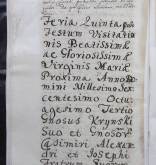 Feria Quinta post
Festum Visitatio
nis Beatissimæ
ac Gloriosissimæ
Virginis Mariæ
Proxima Anno Do
mini Millesimo Sex
centesimo Octua
gesimo Tertio
Gnosus Krynski
Suo et Gnosor
Alexandri
et Josephi
Fratrum